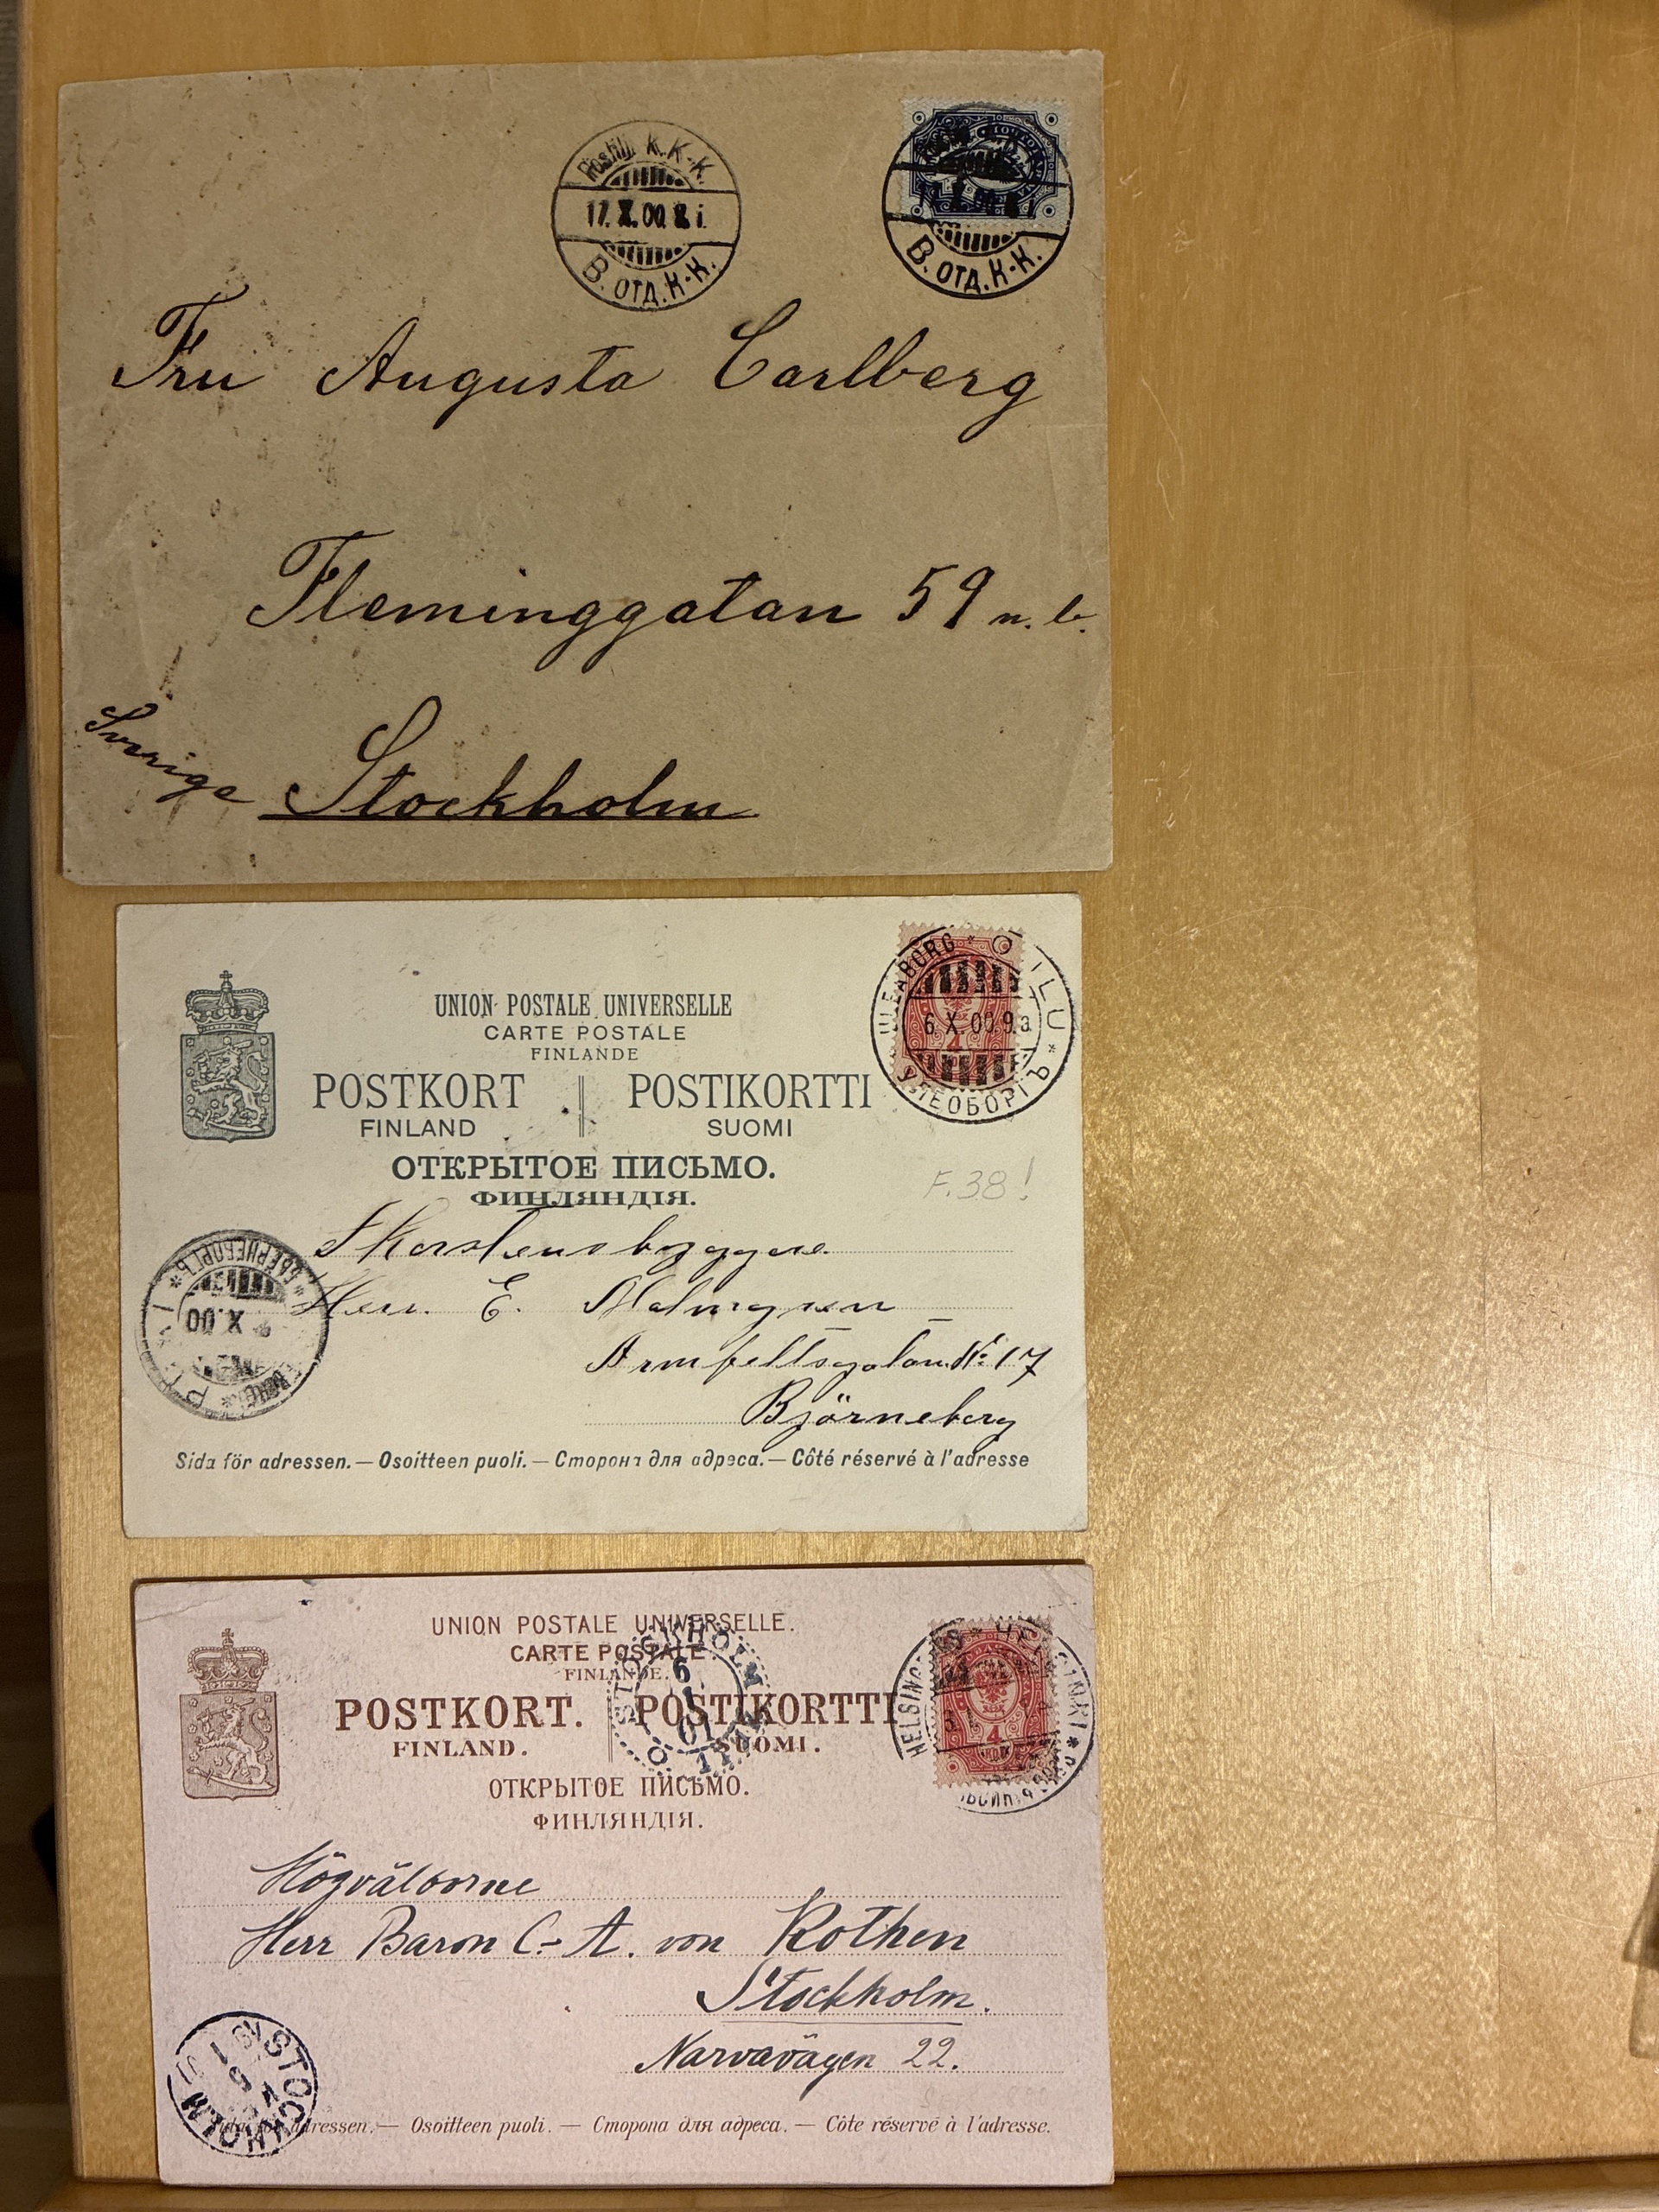 Postilj. K.K-K.
17.X.00. 8 i.
В. ОТД. К-К.
В. ОТД. К-К.
Fru Augusta Carlberg
Fleminggatan 59 n. b.
Sverige
Stockholm
UNION POSTALE UNIVERSELLE
CARTE POSTALE
FINLANDE
POSTKORT POSTIKORTTI
FINLAND SUOMI
ОТКРЫТОЕ ПИСЬМО.
ФИНЛЯНДІЯ.
ULEABORG * OULU *
6.X.00.9 a
УЛЕОБОРГЪ
4
F.38!
X.00
Skorstensbyggare
Herr. E. Malmgren
Armfeltsgatan. No 17
Björneborg
Sida för adressen. — Osoitteen puoli. — Сторона для адреса. — Côté réservé à l'adresse
UNION POSTALE UNIVERSELLE.
CARTE POSTALE.
FINLANDE.
POSTKORT. POSTIKORTTI
FINLAND. SUOMI.
ОТКРЫТОЕ ПИСЬМО.
ФИНЛЯНДІЯ.
STOCKHOLM
6
1
01
HELSINGFORS * HELSINKI *
4
КОП
Högvälborne
Herr Baron C-A. von Kothen
Stockholm.
Narvavägen 22.
STOCKHOLM
adressen. — Osoitteen puoli. — Сторона для адреса. — Côte réservé à l'adresse.